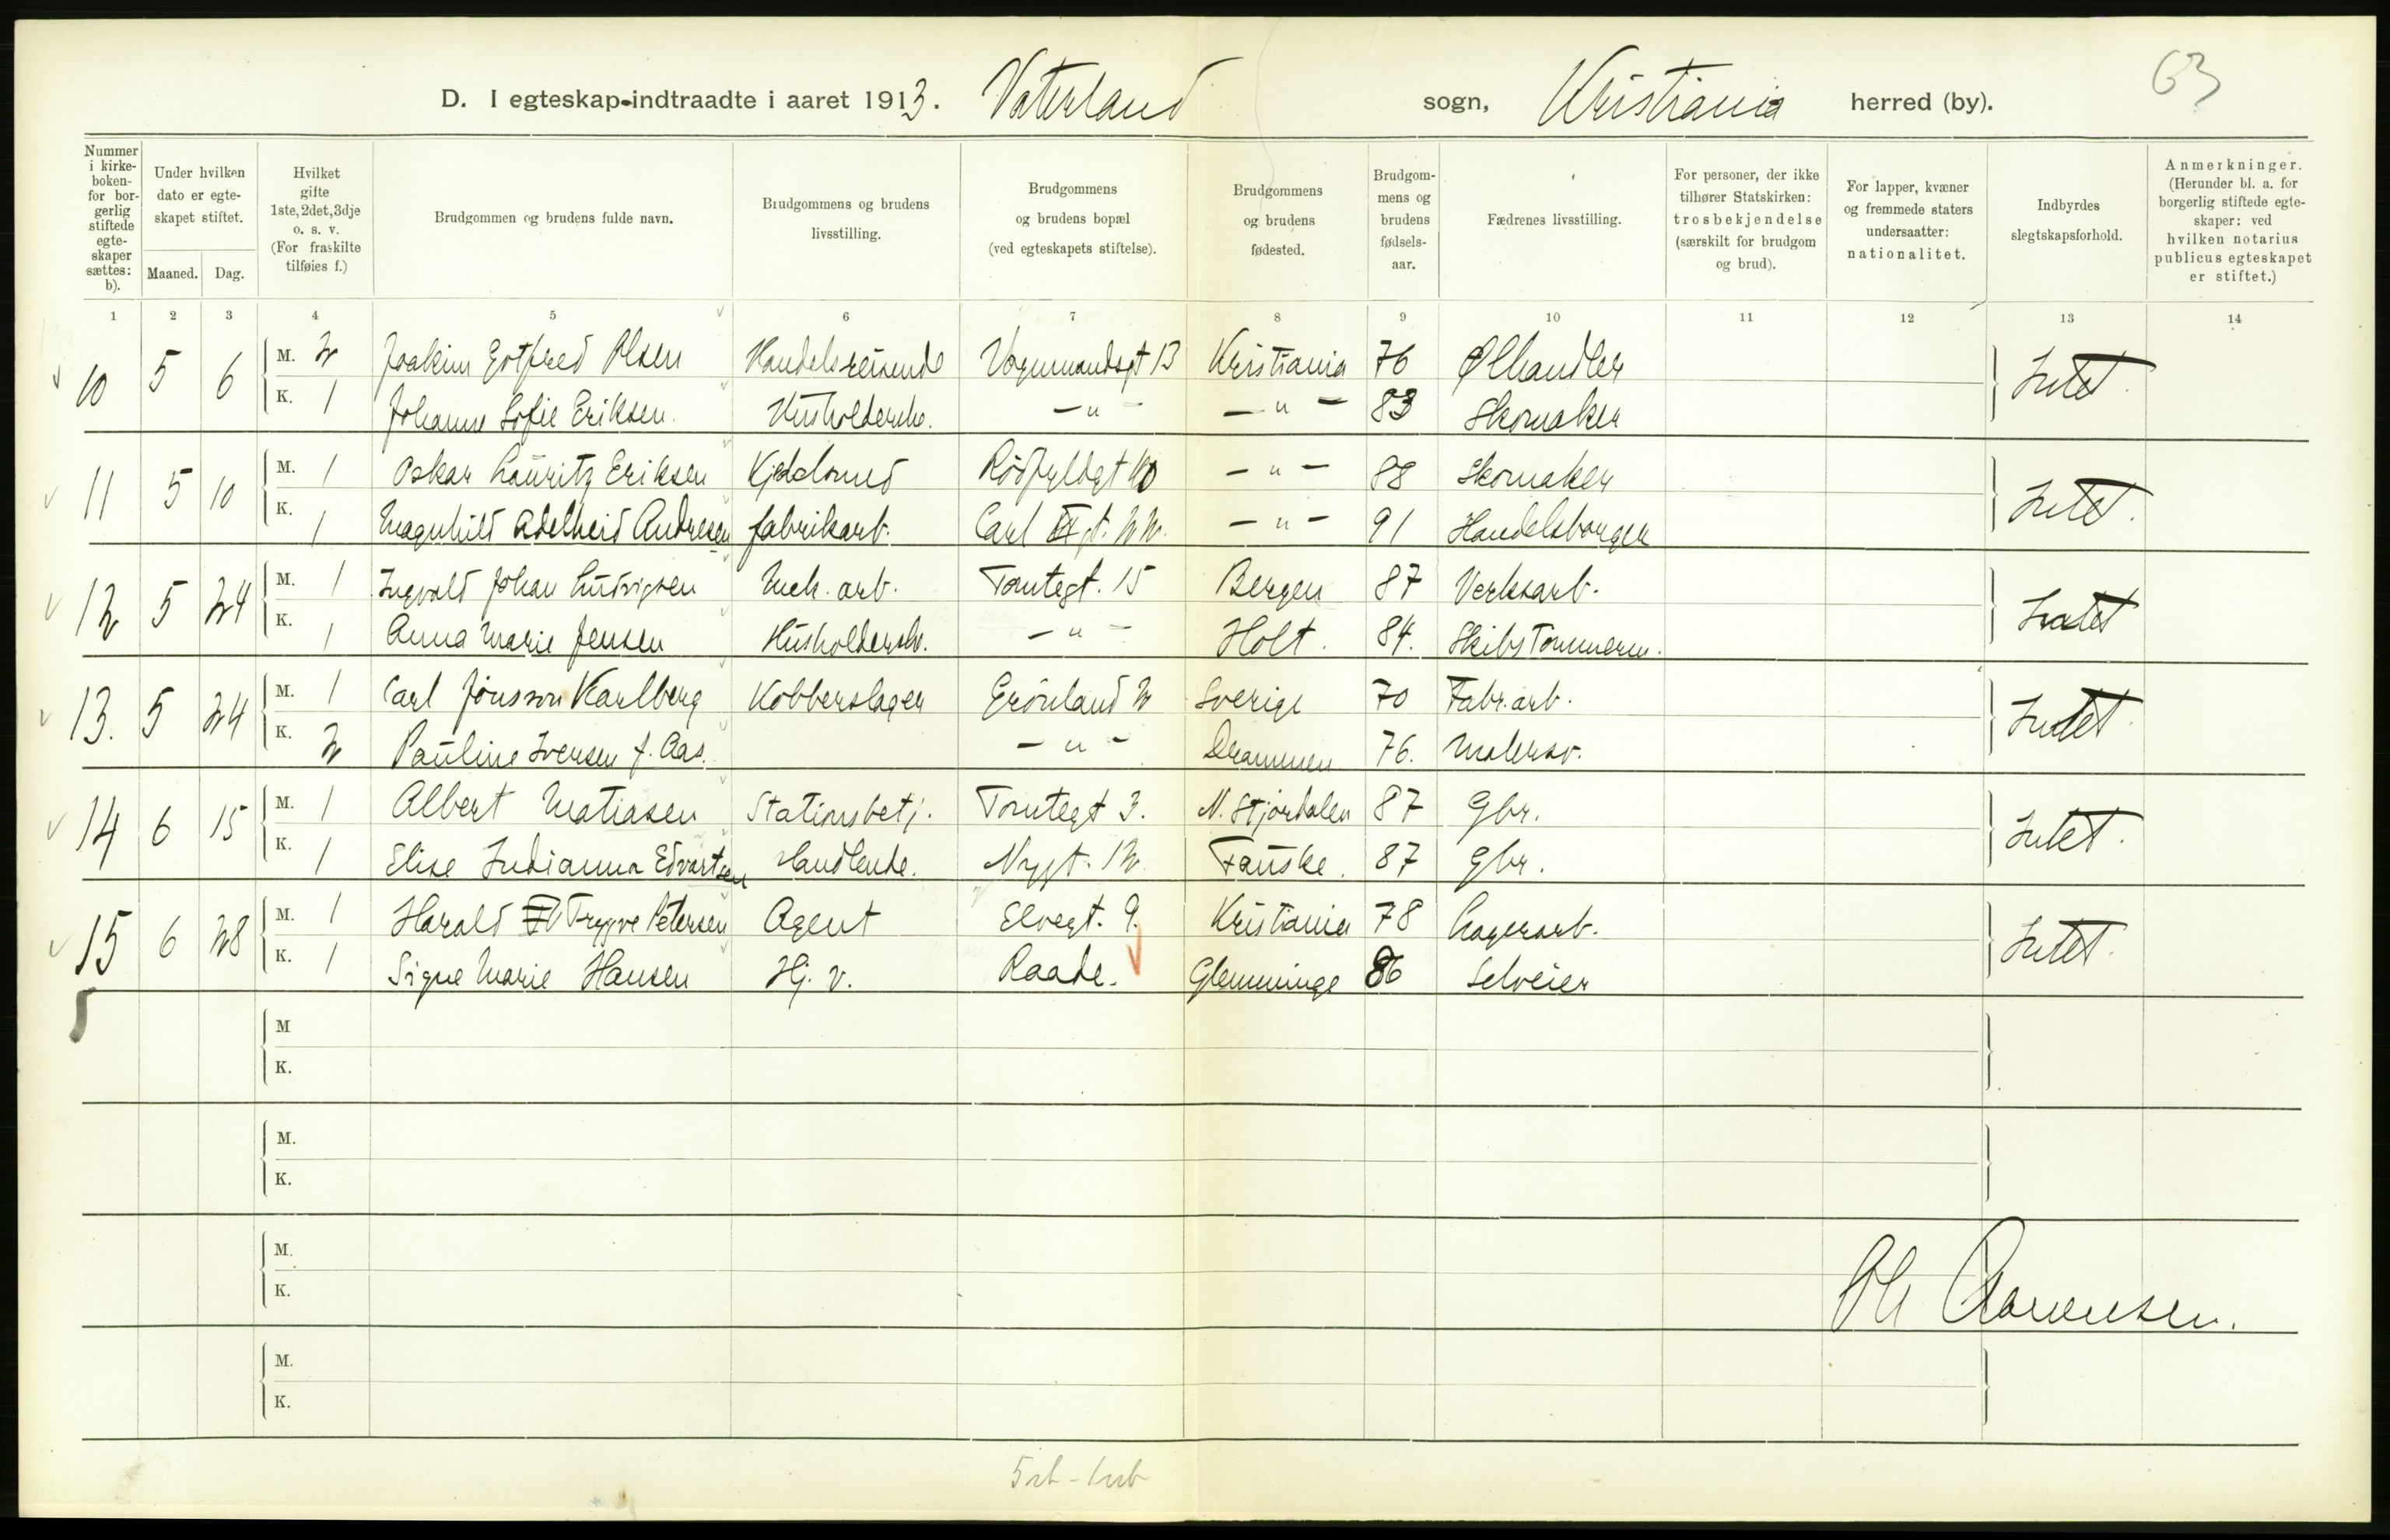 63
D. I egteskap indtraadte i aaret 1913. Vaterland sogn, Kristiania herred (by).
Nummer i kirke-boken for borgerlig stiftede egteskaper sættes: b).
Under hvilken dato er egteskapet stiftet.
Maaned. Dag.
Hvilket gifte 1ste, 2det, 3dje o. s. v. (For fraskilte tilføies f.)
Brudgommen og brudens fulde navn.
Brudgommens og brudens livsstilling.
Brudgommens og brudens bopæl (ved egteskapets stiftelse).
Brudgommens og brudens fødested.
Brudgommens og brudens fødselsaar.
Fædrenes livsstilling.
For personer, der ikke tilhører Statskirken: trosbekjendelse (særskilt for brudgom og brud).
For lapper, kvæner og fremmede staters undersaatter: nationalitet.
Indbyrdes slegtskapsforhold.
Anmerkninger. (Herunder bl. a. for borgerlig stiftede egteskaper: ved hvilken notarius publicus egteskapet er stiftet.)
1 2 3 4 5 6 7 8 9 10 11 12 13 14
10 5 6 M. 2 Joakim Gotfred Olsen Handelsreisende Vognmandsgt 13 Kristiania 76 Ølhandler Intet.
K. 1 Johanne Sofie Eriksen. Husholderske. — " — — " — 83 Skomaker
11 5 10 M. 1 Oskar Lauritz Eriksen Kjedelsmed Rødfyldgt — " — 88 Skomaker Intet.
K. 1 Magnhild Adelheid Andresen fabrikarb. Carl XII gt. 22. — " — 91 Handelsborger
12 5 24 M. 1 Ingvald Johan Ludvigsen Mek. arb. Tomtegt. 15 Bergen 87 Verksarb. Intet
K. 1 Anna Marie Jensen Husholdersk. — " — Holt. 84. Skibstømmerm.
13. 5 24 M. 1 Carl Jónsson Karlberg Kobberslager Grønland 2 Sverige 70 Fabr. arb. Intet.
K. 2 Pauline Iversen f. Aas. — " — Drammen 76. Malersv.
14 6 15 M. 1 Albert Matiasen Stationsbetj. Tomtegt 3. N. Stjørdalen 87 Gbr. Intet.
K. 1 Elise Indianna Edvartsen Handlende. Nygt. 12 Fauske. 87 Gbr.
15 6 28 M. 1 Harald Trygve Petersen Agent Elvegt. 9. Kristiania 78 Lagerarb. Intet.
K. 1 Signe Marie Hansen Hj. v. Raade. Glemminge 86 Selveier
M
K.
M.
K.
M.
K.
M.
K.